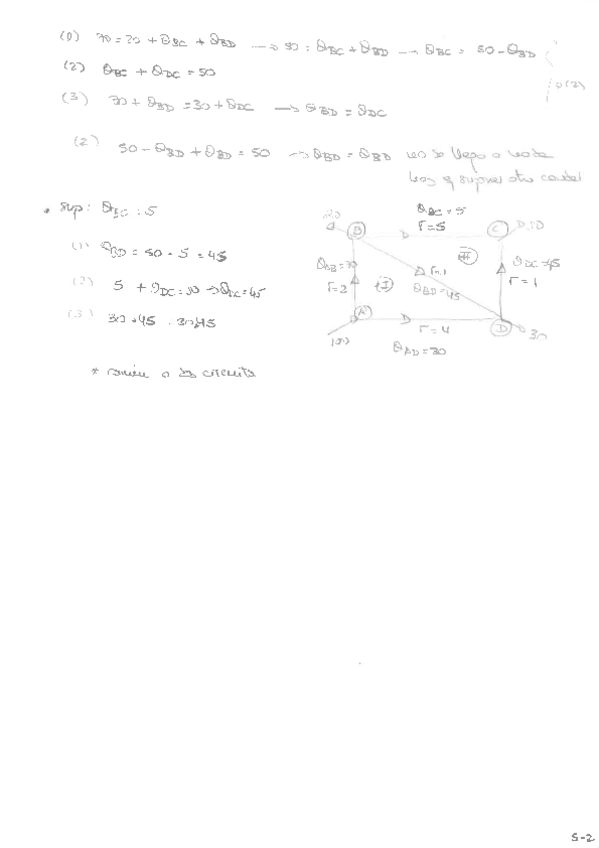 (1) 70 = 20 + QBC + QBD → 50 = QBC + QBD → QBC = 50 - QBD
(2) QBC + QDC = 50
(3) 30 + QBD = 30 + QDC → QBD = QDC
(2) 50 - QBD + QBD = 50 → QBD = QBD no se llega a nada
hay q suponer otro caudal
• Sup: QBC = 5
(1) QBD = 50 - 5 = 45
(2) 5 + QDC = 50 → QDC = 45
(3) 30 + 45 = 30 + 45
QBC = 5
r = 5
B
C
QAB = 70
r = 2
I
r = 1
II
QBD = 45
QDC = 45
r = 1
A
100
r = 4
D
30
QAD = 30
circuito
5-2